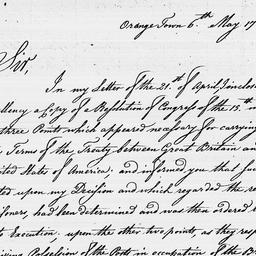 Orange Town 6th May 17
Sir,
In my Letter of the 21.st of April, I inclose
llency a Copy of a Resolution of Congress of the 15.th in
three Points which appeared necessary for carrying
Terms of the Treaty between Great Britain an
ited States of America; and informed you that suc
ted upon my Decision and which regarded the re
isoners, had been determined and was then ordered
to Execution; upon the other two points, as they resp
iving Possession of the Posts in occupation of the B